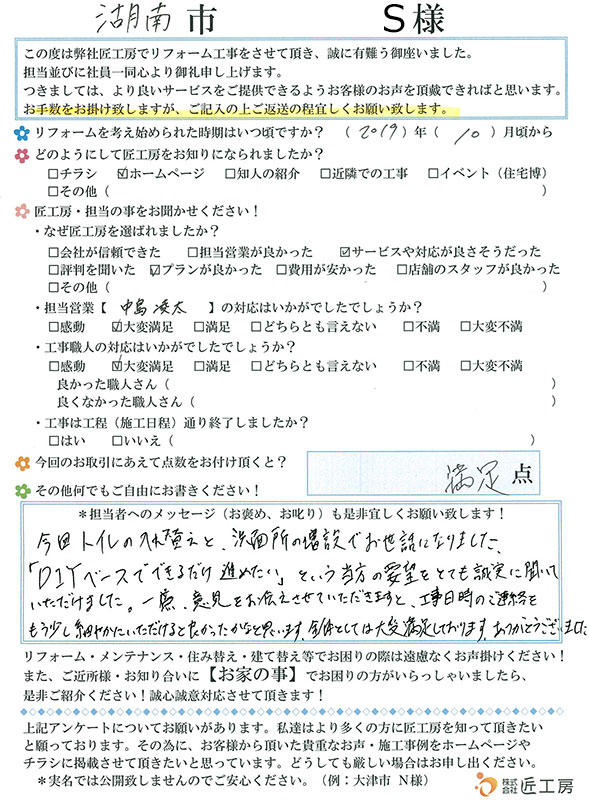 湖南 市 S 様
この度は弊社匠工房でリフォーム工事をさせて頂き、誠に有難う御座いました。
担当並びに社員一同心より御礼申し上げます。
つきましては、より良いサービスをご提供できるようお客様のお声を頂戴できればと思います。
お手数をお掛け致しますが、ご記入の上ご返送の程宜しくお願い致します。
リフォームを考え始められた時期はいつ頃ですか？ （ 2019 ）年（ 10 ）月頃から
どのようにして匠工房をお知りになられましたか？
□チラシ ☑ホームページ □知人の紹介 □近隣での工事 □イベント（住宅博）
□その他（ ）
匠工房・担当の事をお聞かせください！
・なぜ匠工房を選ばれましたか？
□会社が信頼できた □担当営業が良かった ☑サービスや対応が良さそうだった
□評判を聞いた ☑プランが良かった □費用が安かった □店舗のスタッフが良かった
□その他（ ）
・担当営業【 中島 凌太 】の対応はいかがでしたでしょうか？
□感動 ☑大変満足 □満足 □どちらとも言えない □不満 □大変不満
・工事職人の対応はいかがでしたでしょうか？
□感動 ☑大変満足 □満足 □どちらとも言えない □不満 □大変不満
良かった職人さん（ ）
良くなかった職人さん（ ）
・工事は工程（施工日程）通り終了しましたか？
□はい □いいえ（ ）
今回のお取引にあえて点数をお付け頂くと？ 満足 点
その他何でもご自由にお書きください！
＊担当者へのメッセージ（お褒め、お叱り）も是非宜しくお願い致します！
今回トイレの入れ替えと、洗面所の増設でお世話になりました、
「DIYベースでできるだけ進めたい」という当方の要望をとても誠実に聞いて
いただけました。一応、意見をお伝えさせていただきますと、工事日時のご連絡を
もう少し細やかにいただけると良かったかなと思います。全体としては大変満足しております。ありがとうございました
リフォーム・メンテナンス・住み替え・建て替え等でお困りの際は遠慮なくお声掛けください！
また、ご近所様・お知り合いに【お家の事】でお困りの方がいらっしゃいましたら、
是非ご紹介ください！誠心誠意対応させて頂きます！
上記アンケートについてお願いがあります。私達はより多くの方に匠工房を知って頂きたい
と願っております。その為に、お客様から頂いた貴重なお声・施工事例をホームページや
チラシに掲載させて頂きたいと思っています。どうしても厳しい場合はお申し出ください。
＊実名では公開致しませんのでご安心ください。（例：大津市 N様）
株式会社 匠工房